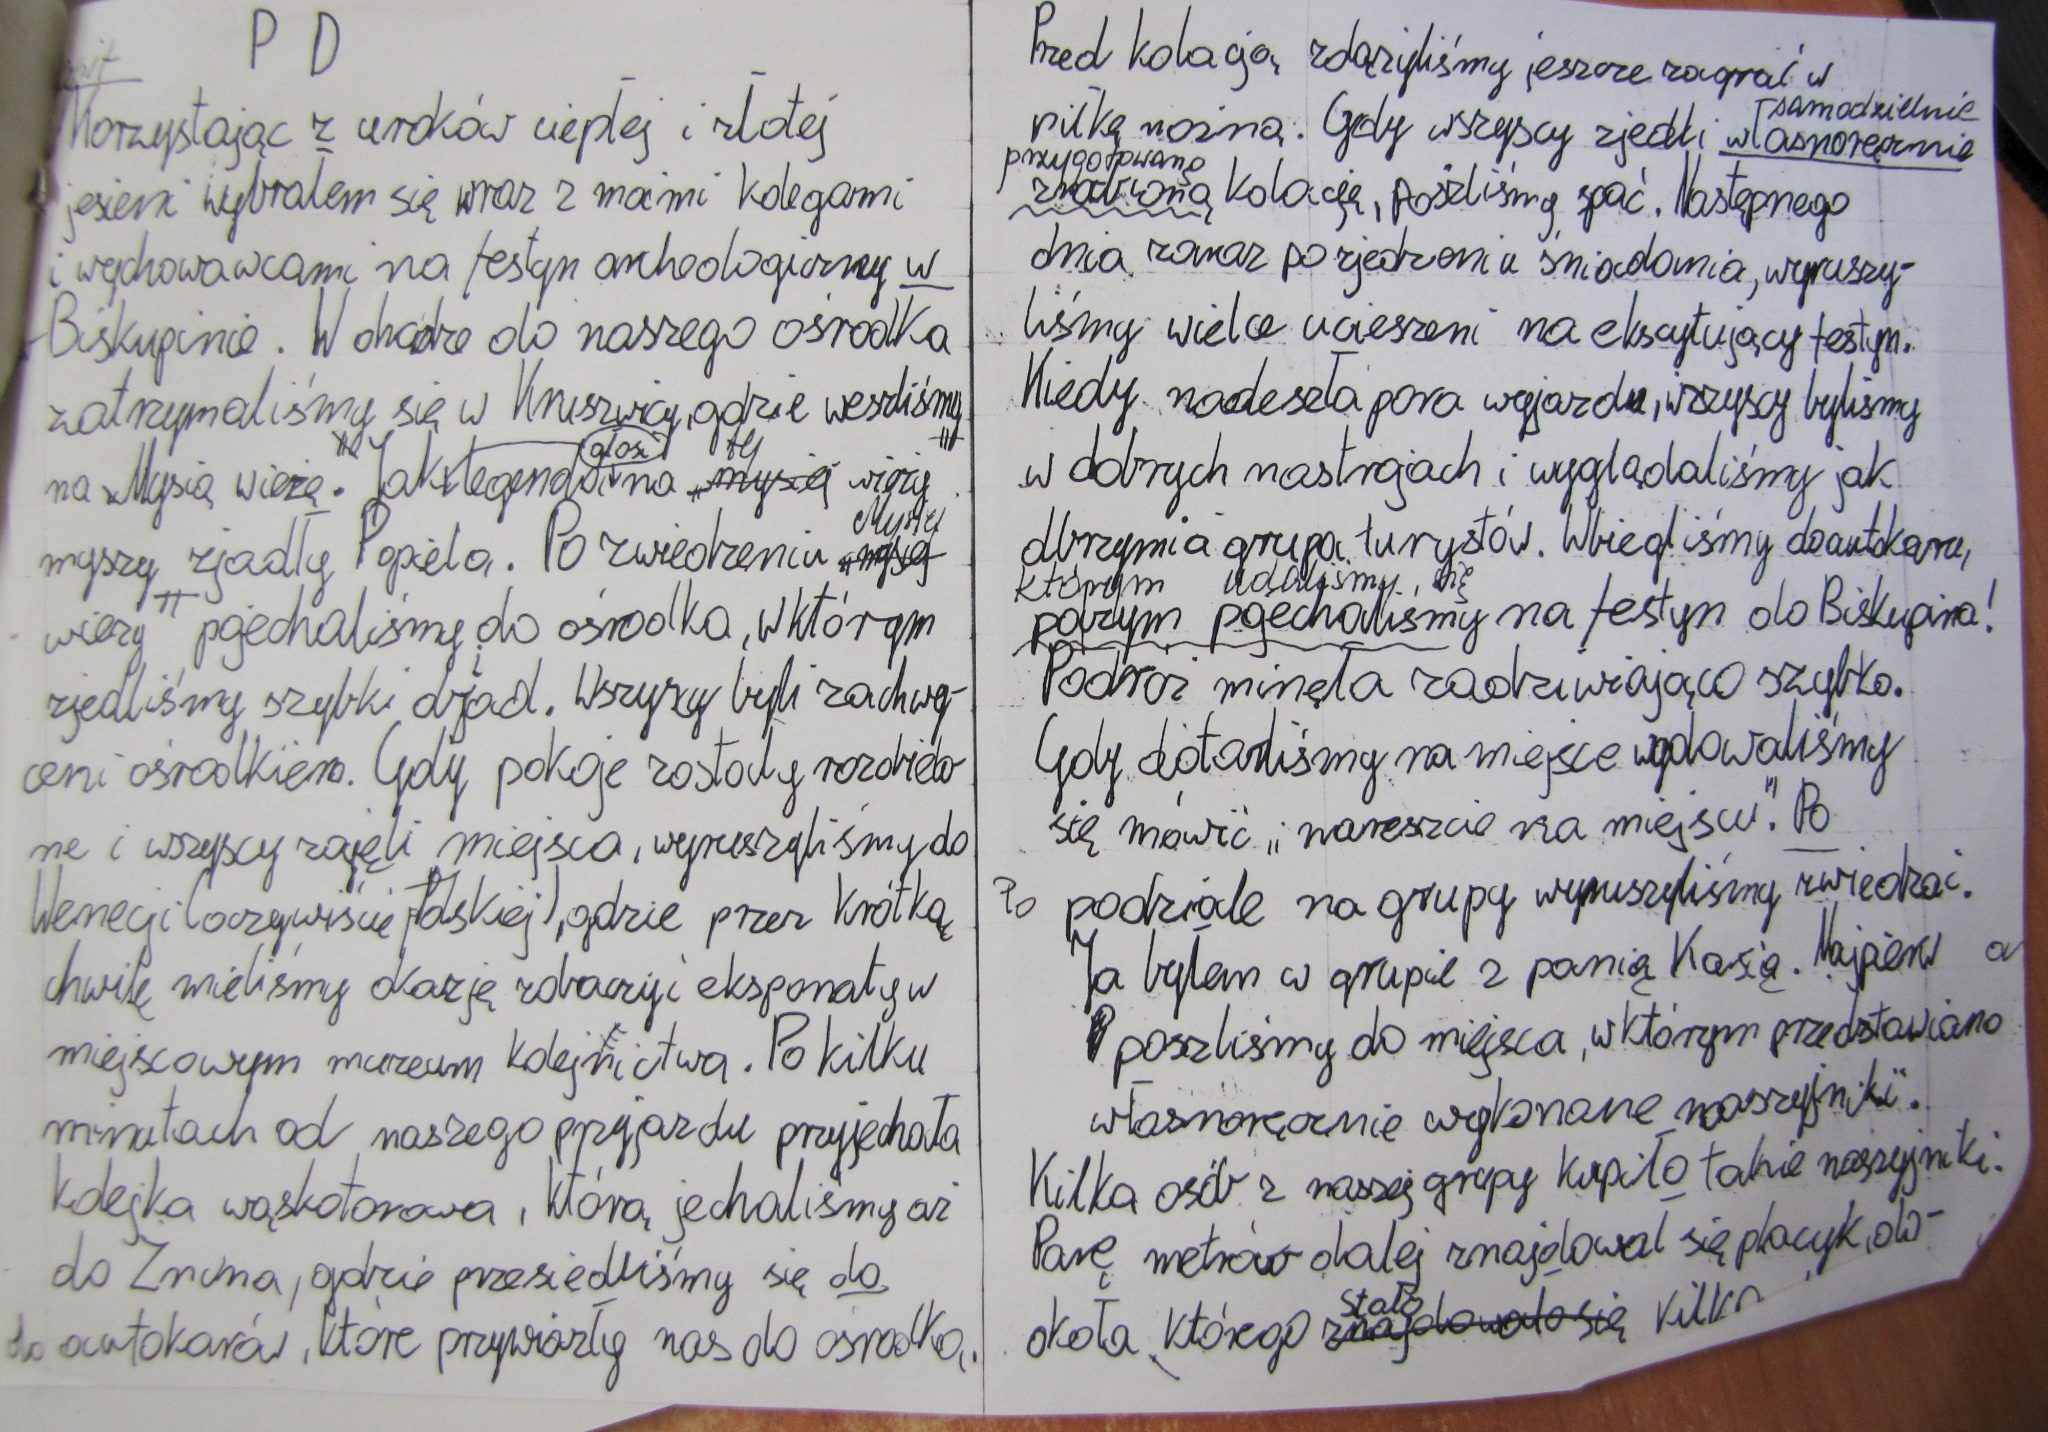 P D
Korzystając z uroków ciepłej i złotej
jesieni wybrałem się wraz z moimi kolegami
i wychowawcami na festyn archeologiczny w
Biskupinie. W drodze do naszego ośrodka
zatrzymaliśmy się w Kruszwicy, gdzie weszliśmy
na „Mysią wieżę". Jak legenda głosi na tej „mysiej wieży"
myszy zjadły Popiela. Po zwiedzeniu „mysiej Mysiej
wieży" pojechaliśmy do ośrodka, w którym
zjedliśmy szybki objad. Wszyscy byli zachwy-
ceni ośrodkiem. Gdy pokoje zostały rozdielo
ne i wszyscy zajęli miejsca, wyruszyliśmy do
Wenecji (oczywiście Polskiej), gdzie przez krótką
chwilę mieliśmy okazję zobaczyć eksponaty w
miejscowym muzeum kolejnictwa. Po kilku
minutach od naszego przyjazdu przyjechała
kolejka wąskotorowa, którą jechaliśmy aż
do Żnina, gdzie przesiedliśmy się do
do autokarów, które przywiozły nas do ośrodka.
Przed kolacją zdążyliśmy jeszcze zagrać w
piłkę nożną. Gdy wszyscy zjedli własnoręcznie samodzielnie
przygotowaną
zrobioną kolację, poszliśmy spać. Następnego
dnia zaraz po zjedzeniu śniadania, wyruszy-
liśmy wielce ucieszeni na ekscytujący festyn.
Kiedy nadeszła pora wyjazdu, wszyscy byliśmy
w dobrych nastrojach i wyglądaliśmy jak
olbrzymia grupa turystów. Wbiegliśmy do autokaru,
którym udaliśmy się
poczym pojechaliśmy na festyn do Biskupina!
Podróż minęła zadziwiająco szybko.
Gdy dotarliśmy na miejsce wydawaliśmy
się mówić „nareszcie na miejscu". Po
Po podziale na grupy wyruszyliśmy zwiedzać.
Ja byłem w grupie z panią Kasią. Najpierw
poszliśmy do miejsca, w którym przedstawiano
własnoręcznie wykonane naszyjniki.
Kilka osób z naszej grupy kupiło takie naszyjniki.
Parę metrów dalej znajdował się placyk, do-
okoła którego znajdowało się stało kilka